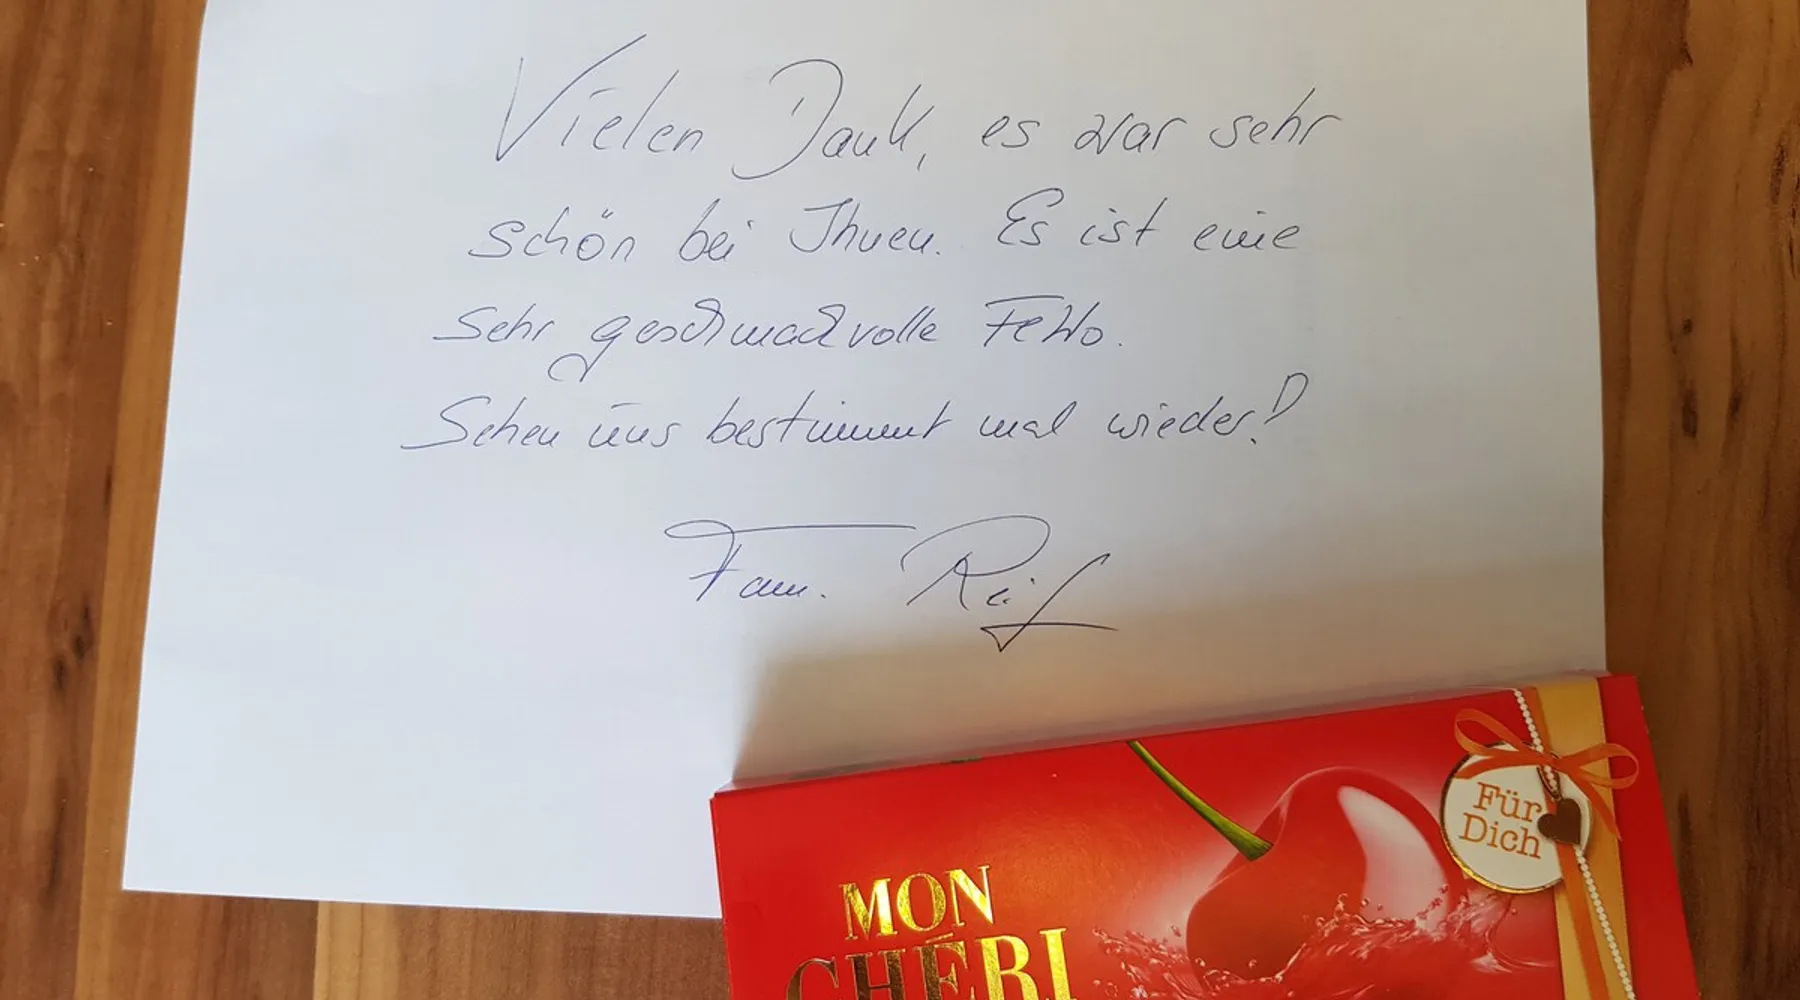 Vielen Dank, es war sehr
schön bei Ihnen. Es ist eine
sehr geschmackvolle FeWo.
Sehen uns bestimmt mal wieder!
Fam. Reif
Für
Dich
MON
CHÉRI